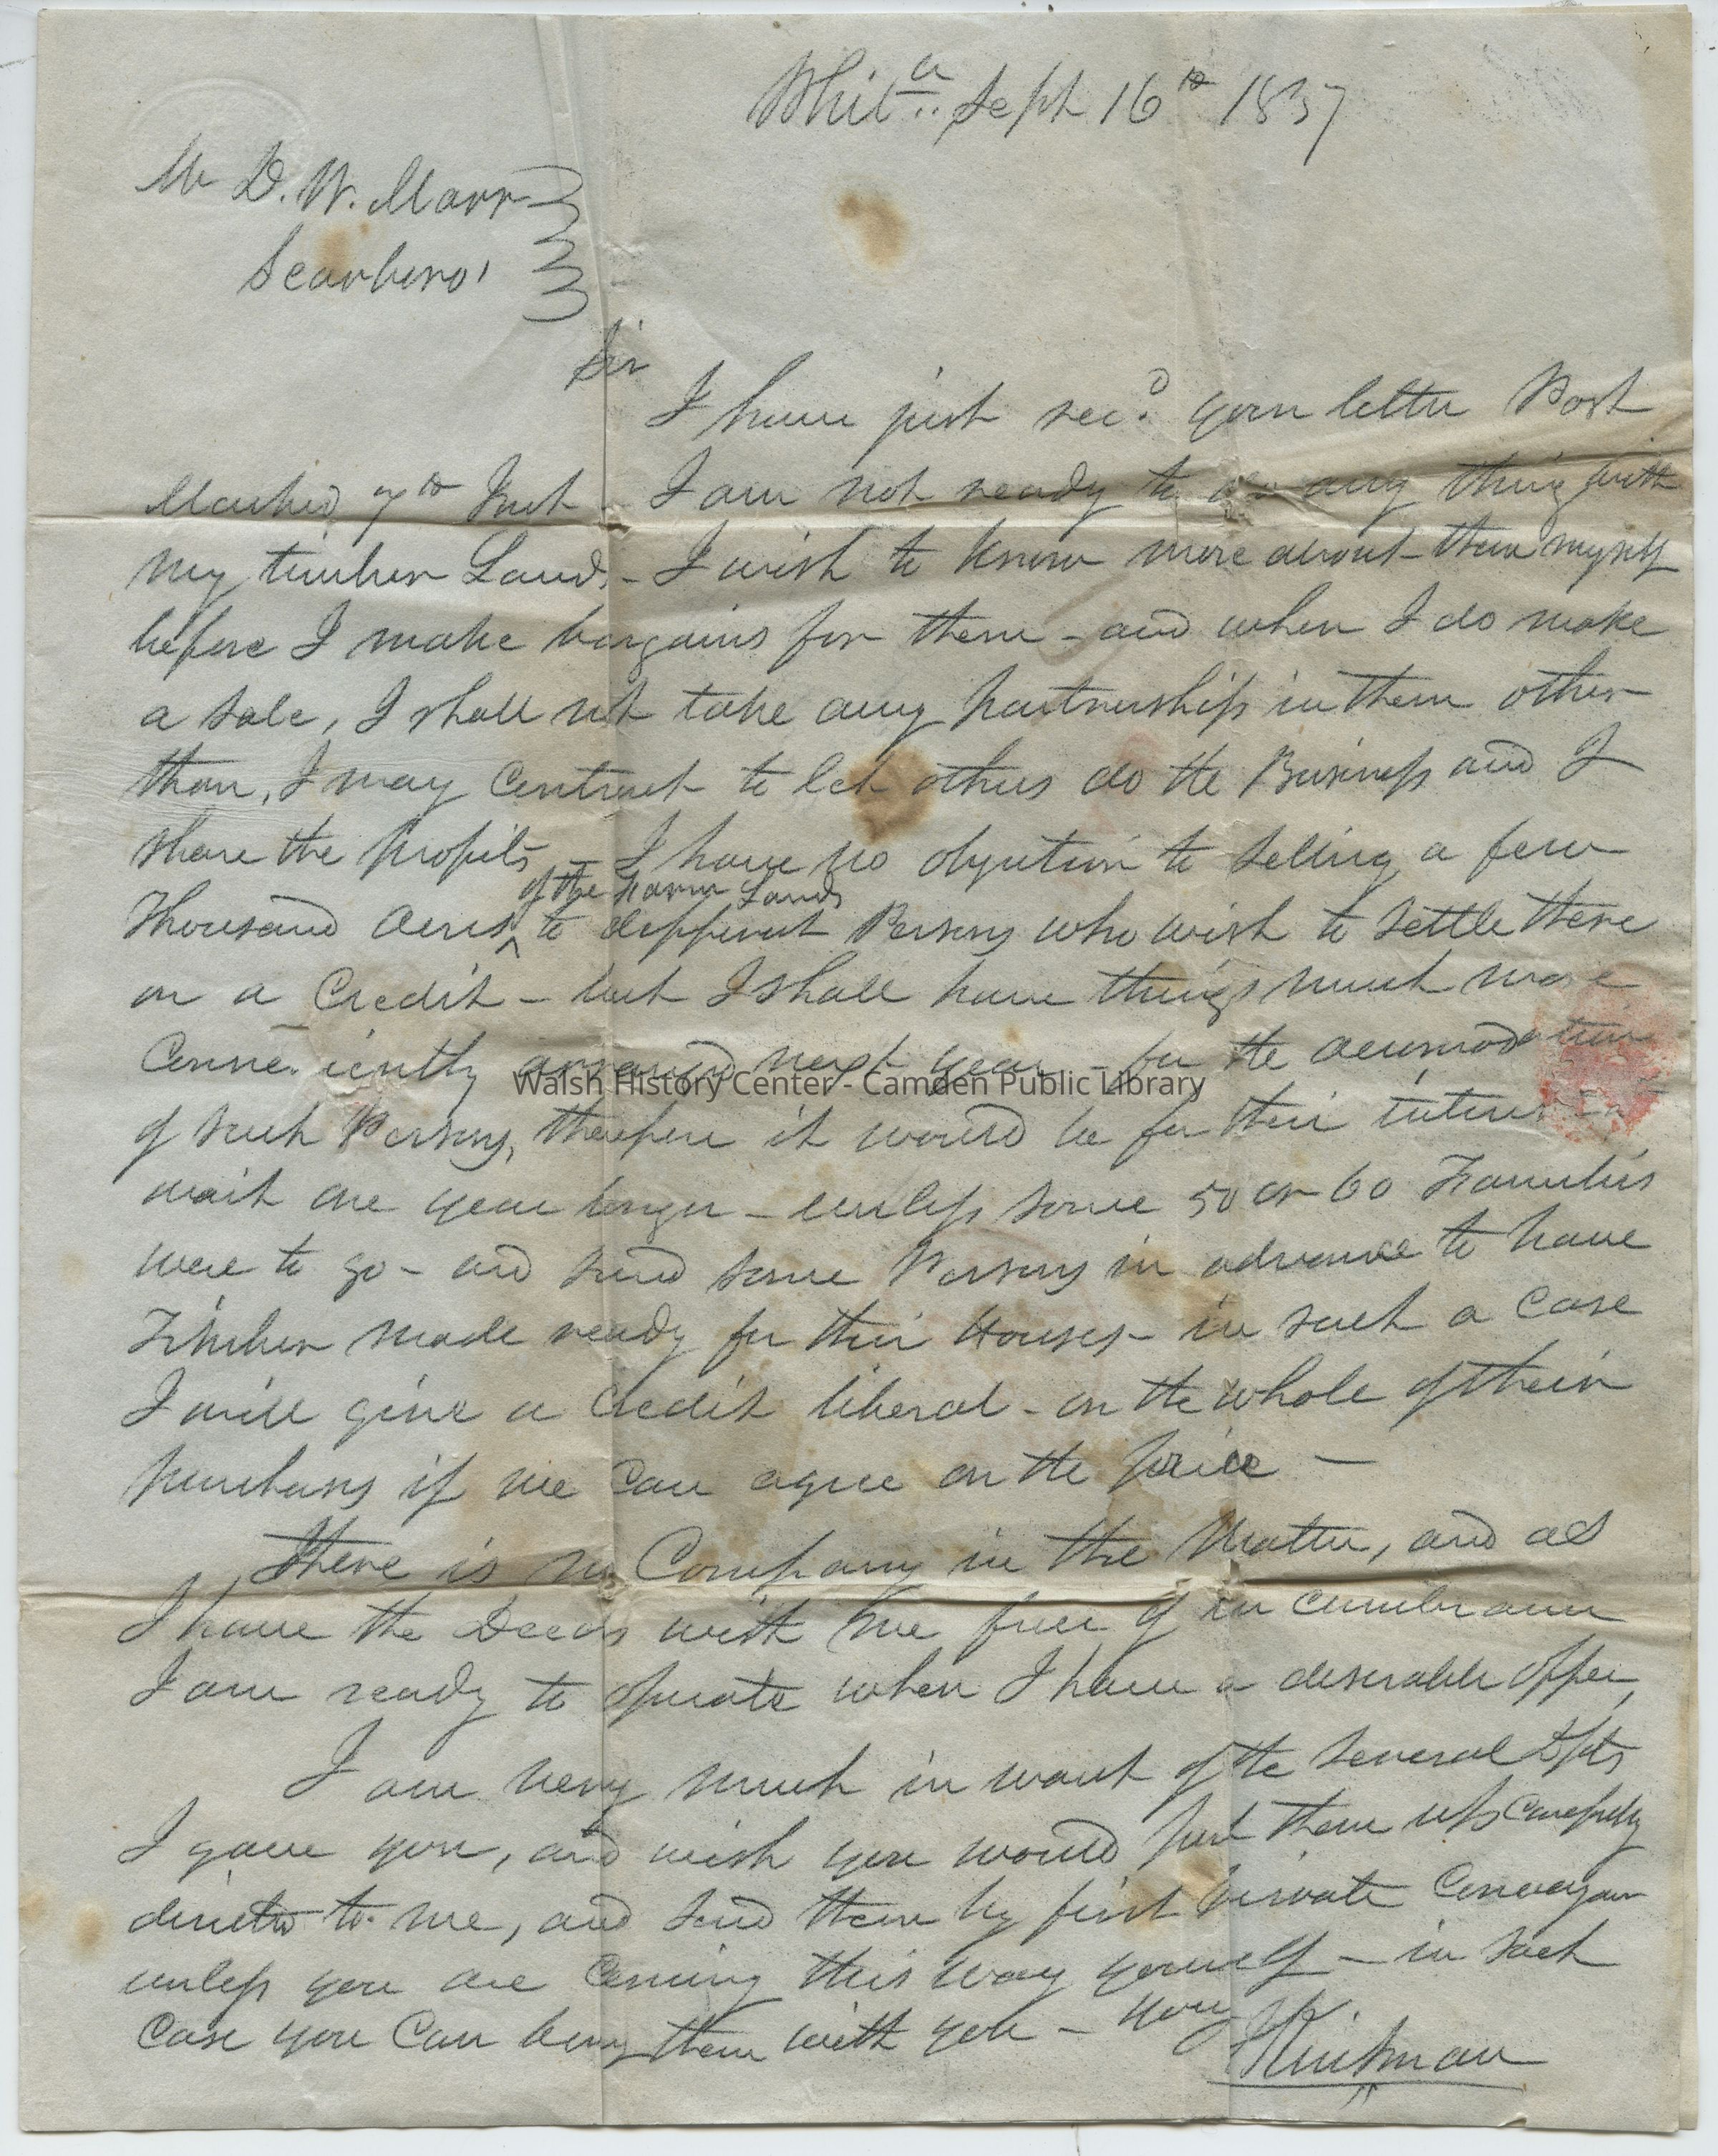 Phila Sept 16th 1837
Mr D. W. Marr
Scarboro'
Sir
I have just recd your letter Post
Marked 7th Inst - I am not ready to do any thing with
my timber Lands - I wish to know more about them myself
before I make bargains for them - and when I do make
a sale, I shall not take any partnership in them other
than, I may Contract to let others do the Business and I
share the profits - I have no objection to selling a few
of the Farm Lands
Thousand acres ^ to different Persons who wish to settle there
on a Credit - but I shall have things much more
Conveniently arranged next year - for the accomodation
of such Persons, therefore it would be for their interest to
wait one year longer - unless some 50 or 60 Families
were to go - and send some Persons in advance to have
Timber made ready for their Houses - in such a Case
I will give a Credit liberal - on the whole of their
purchases if we Can agree on the price -
There is no Company in the Matter, and as
I have the Deeds with me free of incumbrance
I am ready to operate when I have a desirable offer,
I am very much in want of the several
I gave you, and wish you would put them up Carefully
directed to me, and send them by first private Conveyance
unless you are Coming this way yourself - in such
Case you Can bring them with you - Yours
Walsh History Center - Camden Public Library